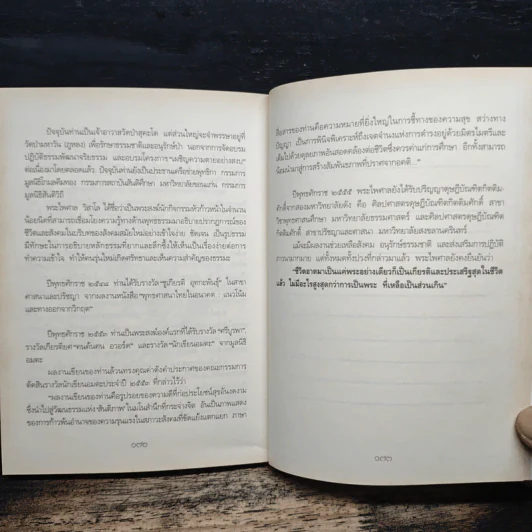 ปัจจุบันท่านเป็นเจ้าอาวาสวัดป่าสุคะโต แต่ส่วนใหญ่จะจำพรรษาอยู่ที่
วัดป่ามหาวัน (ภูหลง) เพื่อรักษาธรรมชาติและอนุรักษ์ป่า นอกจากการจัดอบรม
ปฏิบัติธรรมพัฒนาจริยธรรม และอบรมโครงการ "เผชิญความตายอย่างสงบ"
ต่อเนื่องมาโดยตลอดแล้ว ปัจจุบันท่านยังเป็นประธานเครือข่ายพุทธิกา กรรมการ
มูลนิธิโกมลคีมทอง กรรมการสถาบันสันติศึกษา มหาวิทยาลัยขอนแก่น กรรมการ
มูลนิธิสันติวิถี
พระไพศาล วิสาโล ได้ชื่อว่าเป็นพระสงฆ์นักกิจกรรมหัวก้าวหน้าในจำนวน
น้อยนิดที่สามารถเชื่อมโยงความรู้ทางด้านพุทธธรรมมาอธิบายปรากฏการณ์ของ
ชีวิตและสังคมในบริบทของสังคมสมัยใหม่อย่างเข้าใจง่าย ชัดเจน เป็นรูปธรรม
มีทักษะในการอธิบายหลักธรรมที่ยากและลึกซึ้งให้เห็นเป็นเรื่องง่ายต่อการ
ทำความเข้าใจ ทำให้คนรุ่นใหม่เกิดศรัทธาและเห็นความสำคัญของธรรมะ
ปีพุทธศักราช ๒๕๔๘ ท่านได้รับรางวัล"ชูเกียรติ อุทกะพันธุ์" ในสาขา
ศาสนาและปรัชญา จากผลงานหนังสือ"พุทธศาสนาไทยในอนาคต : แนวโน้ม
และทางออกจากวิกฤต"
ปีพุทธศักราช ๒๕๕๓ ท่านเป็นพระสงฆ์องค์แรกที่ได้รับรางวัล "ศรีบูรพา",
รางวัลเกียรติยศ"คนค้นฅน อวอร์ด" และรางวัล"นักเขียนอมตะ" จากมูลนิธิ
อมตะ
ผลงานเขียนของท่านล้วนทรงคุณค่าดังคำประกาศของคณะกรรมการ
ตัดสินรางวัลนักเขียนอมตะประจำปี ๒๕๕๓ ที่กล่าวไว้ว่า
"ผลงานเขียนของท่านคือรูปรอยของความดีที่ก่อประโยชน์สุขอันงดงาม
ซึ่งนำไปสู่วัฒนธรรมแห่ง"สันติภาพ"ในมโนสำนึกที่กระจ่างจิต อันเป็นภาพแสดง
ของการก้าวพ้นอำนาจของความรุนแรงในสภาวะสังคมที่ขัดแย้งแตกแยก ภาษา
๑๗๑
สื่อสารของท่านคือความหมายที่ยิ่งใหญ่ในการชี้ทางของความสุข สว่างทาง
ปัญญา เป็นการพินิจพิเคราะห์ถึงเจตจำนงแห่งการดำรงอยู่ด้วยมิตรไมตรีและ
เต็มไปด้วยคุณภาพอันสอดคล้องต่อชีวิตซึ่งควรค่าแก่การศึกษา อีกทั้งสามารถ
น้อมนำมาสู่การสร้างสัมพันธภาพที่ปราศจากอคติ..."
ปีพุทธศักราช ๒๕๕๕ พระไพศาลยังได้รับปริญญาดุษฎีบัณฑิตกิตติม
ศักดิ์จากสองมหาวิทยาลัยดัง คือ ศิลปศาสตรดุษฎีบัณฑิตกิตติมศักดิ์ สาขา
วิชาพุทธศาสนศึกษา มหาวิทยาลัยธรรมศาสตร์ และศิลปศาสตรดุษฎีบัณฑิต
กิตติมศักดิ์ สาขาปรัชญาและศาสนา มหาวิทยาลัยสงขลานครินทร์
แม้จะมีผลงานช่วยเหลือสังคม อนุรักษ์ธรรมชาติ และส่งเสริมการปฏิบัติ
ภาวนามากมาย แต่ทั้งหมดทั้งปวงที่กล่าวมาแล้ว พระไพศาลยังคงยืนยันว่า
"ชีวิตอาตมาเป็นแค่พระอย่างเดียวก็เป็นเกียรติและประเสริฐสุดในชีวิต
แล้ว ไม่มีอะไรสูงสุดกว่าการเป็นพระ ที่เหลือเป็นส่วนเกิน"
๑๗๒